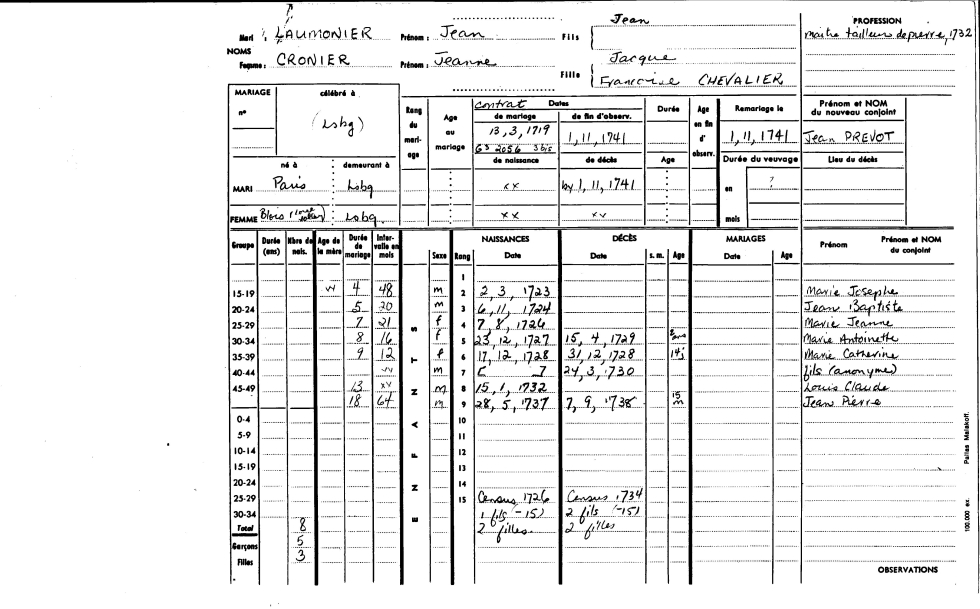 Jean
Mari : LAUMONIER Prénom : Jean Fils
PROFESSION
maitre tailleur de pierre, 1732
NOMS
Femme : CRONIER Prénom : Jeanne Fille
Jacque
Francoise CHEVALIER
MARIAGE célébré à
n° (Lsbg)
Rang du mariage
Age au mariage
contrat Dates
de mariage de fin d'observ.
13, 3, 1719 1, 11, 1741
G3 2056 3bis
de naissance de décès Age
Durée
Age en fin d'observ.
Remariage le
1, 11, 1741
Durée du veuvage
en ?
mois
Prénom et NOM du nouveau conjoint
Jean PREVOT
Lieu du décès
né à : demeurant à
MARI Paris Lsbg xx by 1, 11, 1741
FEMME Blois Lsbg. xx xx
Groupe Durée (ans) Nbre de nais. Age de la mère Durée de mariage Intervalle en mois Sexe Rang NAISSANCES Date DÉCÈS Date s. m. Age MARIAGES Date Age Prénom Prénom et NOM du conjoint
ENFANTS
1
15-19 4 48 m 2 2, 3, 1723 Marie Josephe
20-24 5 20 m 3 6, 11, 1724 Jean Baptiste
25-29 7 21 f 4 7, 8, 1726 Marie Jeanne
30-34 8 16 f 5 23, 12, 1727 15, 4, 1729 Marie Antoinette
35-39 9 12 f 6 17, 12, 1728 31, 12, 1728 14j Marie Catherine
40-44 m 7 24, 3, 1730 fils (anonyme)
45-49 13 xv m 8 15, 1, 1732 Louis Claude
18 64 m 9 28, 5, 1737 7, 9, 1738 15 m Jean Pierre
0-4 10
5-9 11
10-14 12
15-19 13
20-24 14
25-29 15 Census 1726 Census 1734
30-34 1 fils (-15) 2 fils (-15)
Total 8 2 filles. 2 filles
Garçons 5
Filles 3
OBSERVATIONS
100.000 ex. Pallas Malakoff.